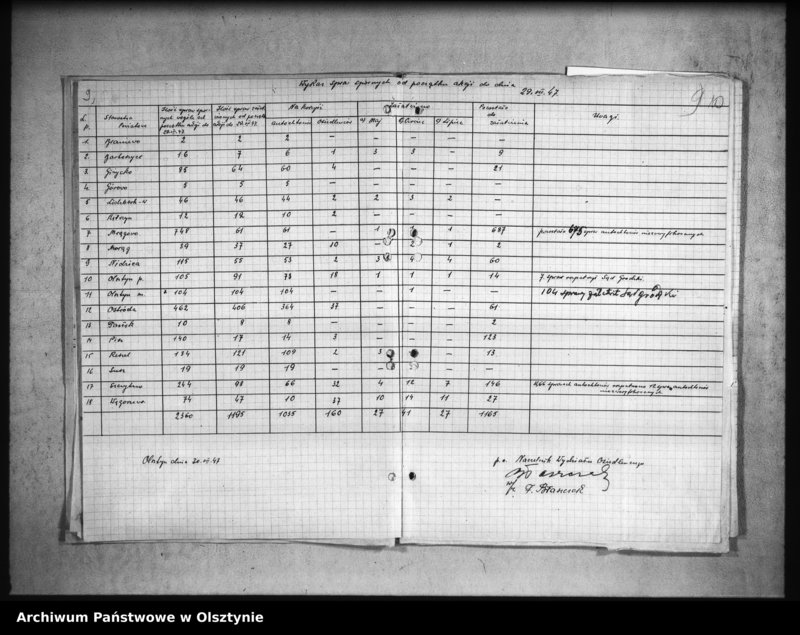 9, Wykaz spraw spornych od początku akcji do dnia 29.VII.47 9 10
L.p. Starostwo Powiatowe Ilość spraw spornych wogóle od początku akcji do 29.VII.47 Ilość spraw załatwionych od początku akcji do 29.VII.47 Na korzyść Załatwiono Pozostało do załatwienia Uwagi
autochtonów Osadników w Maj w Czerwiec w Lipiec
1. Braniewo 2 2 2 — — — — —
2. Bartoszyce 16 7 6 1 3 3 — 9
3. Giżycko 85 64 60 4 — — — 21
4. Górowo 5 5 5 — — — — —
5 Lidzbark-W 46 46 44 2 2 3 2 —
6 Kętrzyn 12 12 10 2 — — — —
7 Mrągowo 748 61 61 — 1 1 1 687 pozostało 675 spraw autochtonów niezweryfikowanych
8 Morąg 39 37 27 10 — 2 1 2
9 Nidzica 115 55 53 2 3 4 4 60
10 Olsztyn p. 105 91 73 18 1 1 1 14 7 spraw rozpatrzył Sąd Grodzki
11 Olsztyn m. 104 104 104 — — 1 — — 104 sprawy załatwił Sąd Grodzki
12 Ostróda 462 406 364 37 — — — 61
13 Pasłęk 10 8 8 — — — — 2
14 Pisz 140 17 14 3 — — — 123
15 Reszel 134 121 109 2 3 — 13
16 Susz 19 19 19 — — — — —
17 Szczytno 244 98 66 32 4 12 7 146 autochtonów rozpatrzono 12 spraw autochtonów niezweryfikowanych
18 Węgorzewo 74 47 10 37 10 14 11 27
2360 1195 1035 160 27 41 27 1165
Olsztyn dnia 30.VII.47 p.o. Naczelnik Wydziału Osiedleńczego
Archiwum Państwowe w Olsztynie